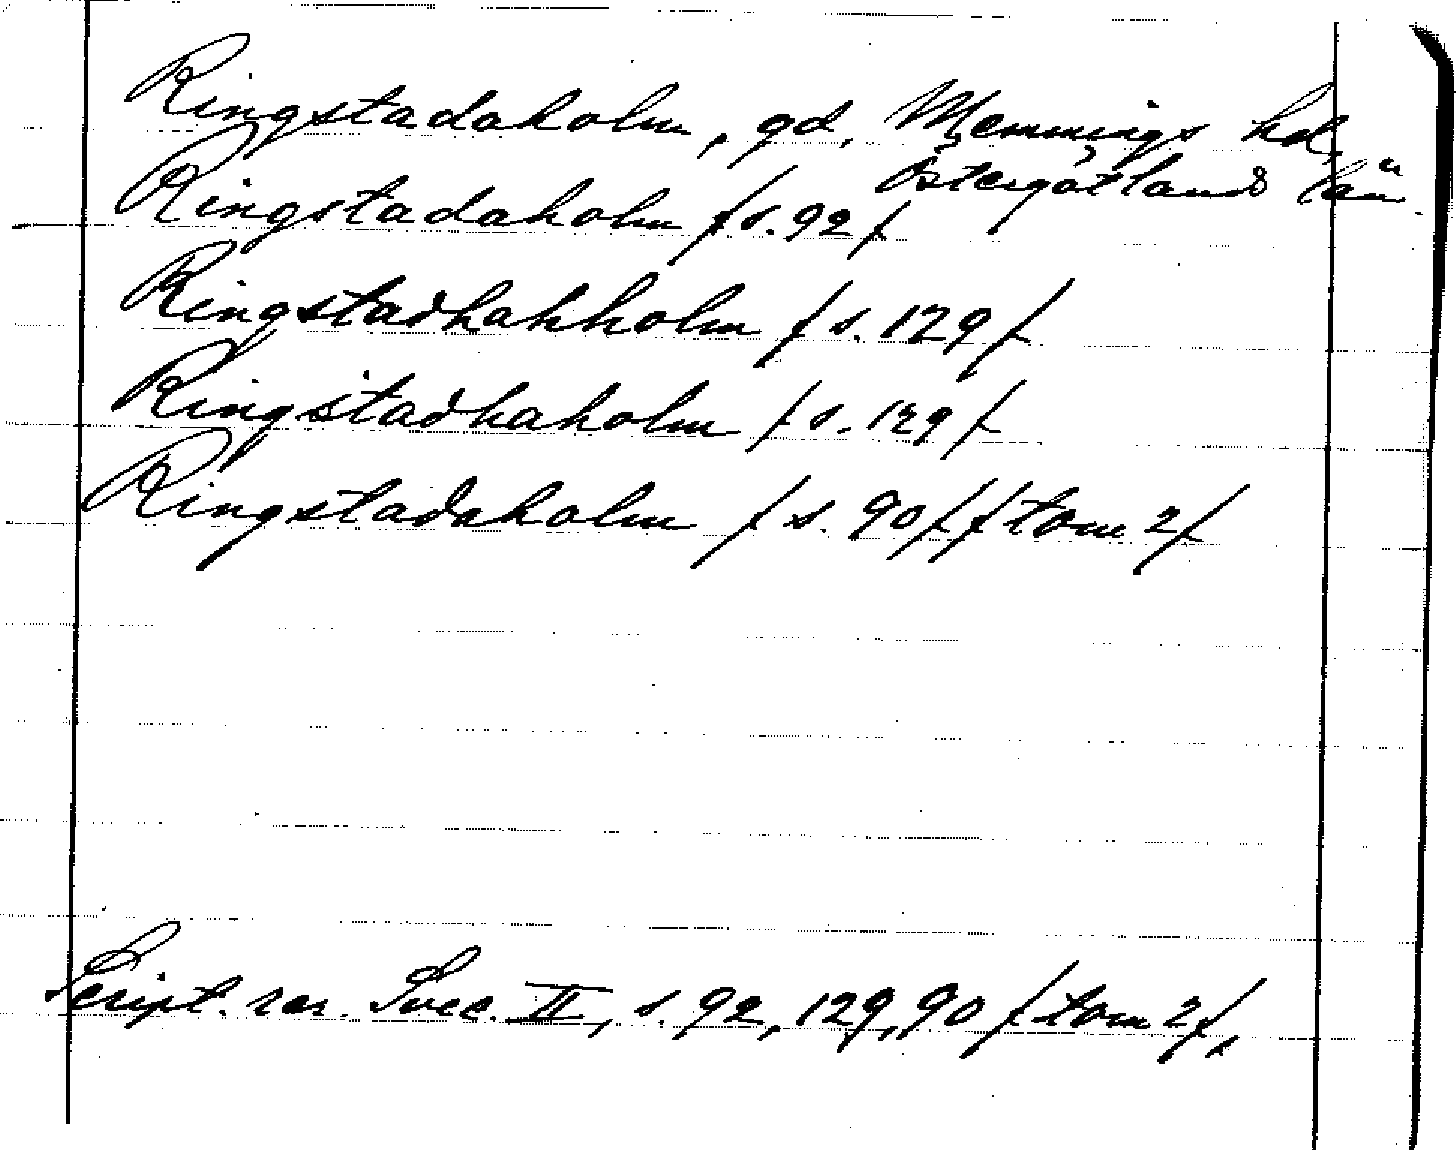 Ringstadaholm, gd, Memmings hd,
Östergötlands län.
Ringstadaholm / s. 92 /
Ringstadhahholm / s. 129 /
Ringstadhaholm / s. 129 /
Ringstadaholm / s. 90 / / tom 2 /
Script. rer. Svec. II, s. 92, 129, 90 / tom 2 /,